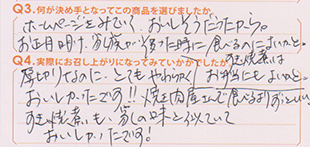 Q3.何が決め手となってこの商品を選びましたか。
ホームページをみていて、おいしそうだったから。
お正月明け、家族が集った時に食べるのにいいかと。
Q4.実際にお召し上がりになってみていかがでしたか。
すき焼煮は
お弁当にもよいかと。
厚切りなのに、とてもやわらかく
おいしかったです!!焼き肉屋さんで食べるよりずっといい。
すき焼煮も、家の味と似ていて
おいしかったです!